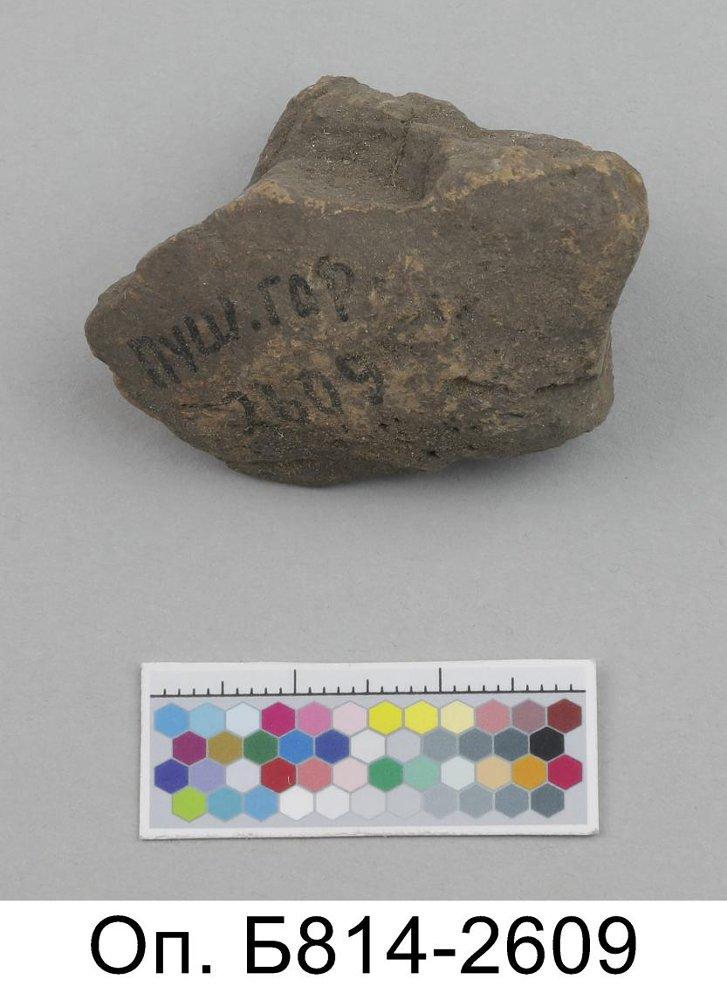 ПУШ.ГОР
2609
Оп. Б814-2609